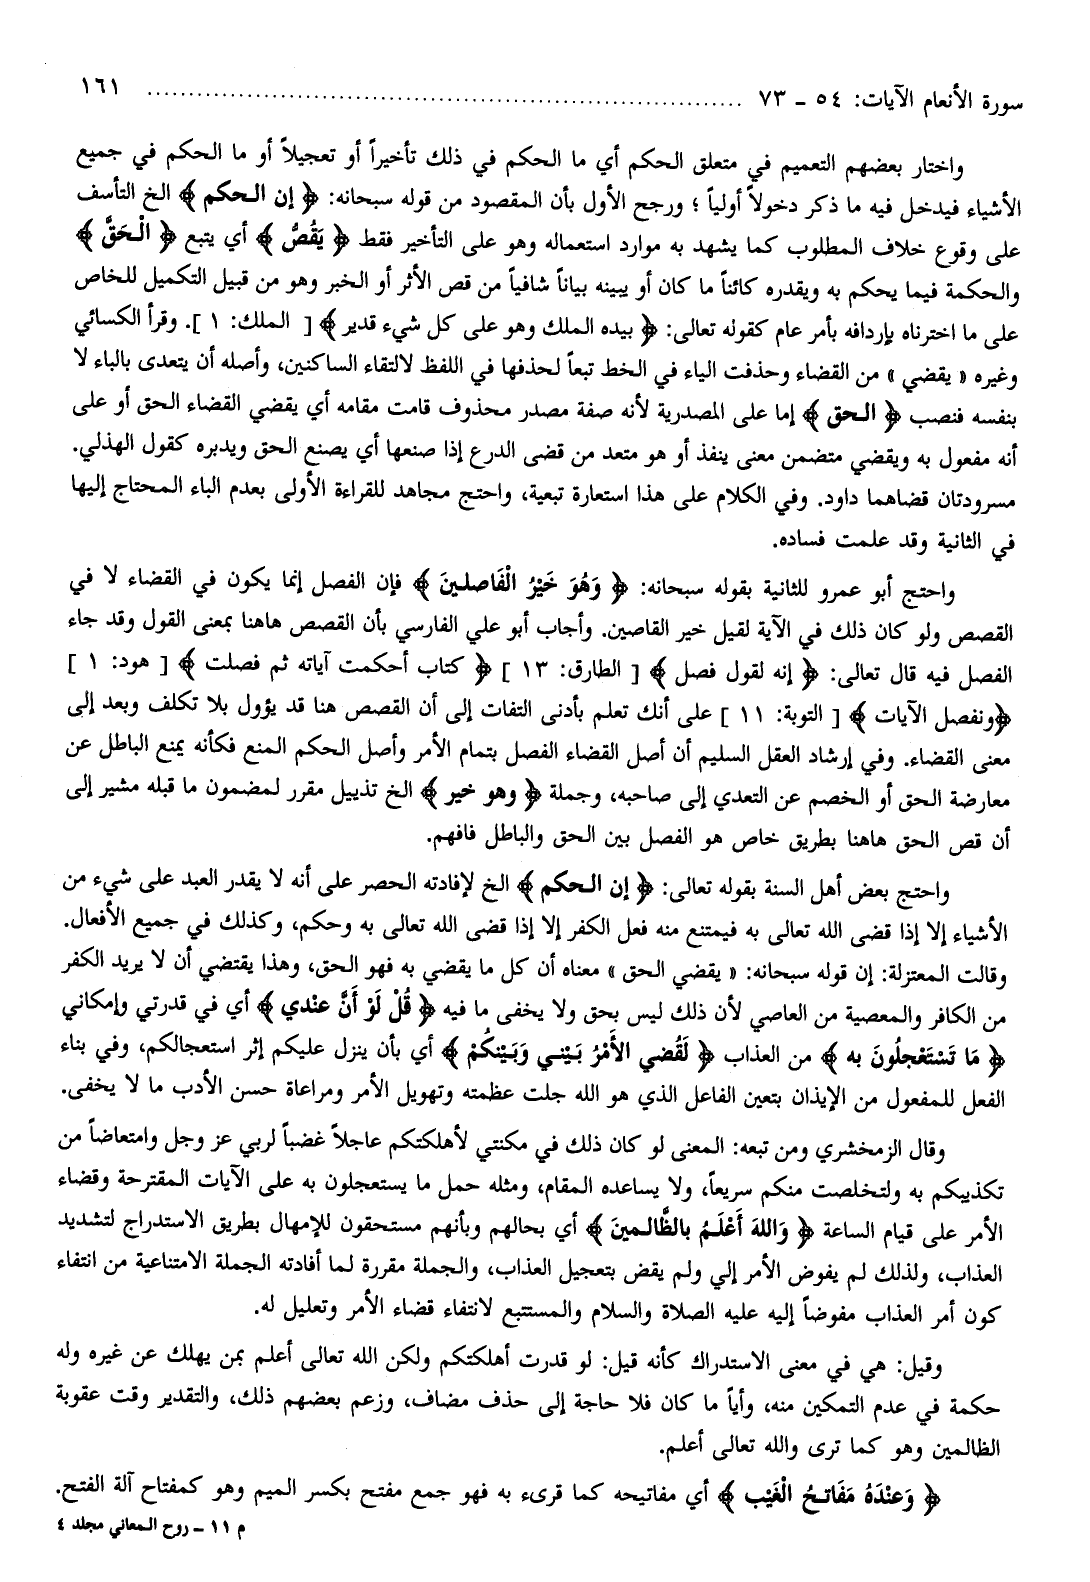 سورة الأنعام الآيات: ٥٤ ـ ٧٣ ........................................................................ ١٦١
واختار بعضهم التعميم في متعلق الحكم أي ما الحكم في ذلك تأخيراً أو تعجيلاً أو ما الحكم في جميع
الأشياء فيدخل فيه ما ذكر دخولاً أولياً ؛ ورجح الأول بأن المقصود من قوله سبحانه: ﴿ إن الحكم ﴾ الخ التأسف
على وقوع خلاف المطلوب كما يشهد به موارد استعماله وهو على التأخير فقط ﴿ يَقُصُّ ﴾ أي يتبع ﴿ الْحَقَّ ﴾
والحكمة فيما يحكم به ويقدره كائناً ما كان أو يبينه بياناً شافياً من قص الأثر أو الخبر وهو من قبيل التكميل للخاص
على ما اخترناه بإردافه بأمر عام كقوله تعالى: ﴿ بيده الملك وهو على كل شيء قدير ﴾ [ الملك: ١ ]. وقرأ الكسائي
وغيره « يقضي » من القضاء وحذفت الياء في الخط تبعاً لحذفها في اللفظ لالتقاء الساكنين، وأصله أن يتعدى بالباء لا
بنفسه فنصب ﴿ الحق ﴾ إما على المصدرية لأنه صفة مصدر محذوف قامت مقامه أي يقضي القضاء الحق أو على
أنه مفعول به ويقضي متضمن معنى ينفذ أو هو متعد من قضى الدرع إذا صنعها أي يصنع الحق ويدبره كقول الهذلي.
مسرودتان قضاهما داود. وفي الكلام على هذا استعارة تبعية، واحتج مجاهد للقراءة الأولى بعدم الباء المحتاج إليها
في الثانية وقد علمت فساده.
واحتج أبو عمرو للثانية بقوله سبحانه: ﴿ وَهُوَ خَيْرُ الْفَاصلينَ ﴾ فإن الفصل إنما يكون في القضاء لا في
القصص ولو كان ذلك في الآية لقيل خير القاصين. وأجاب أبو علي الفارسي بأن القصص هاهنا بمعنى القول وقد جاء
الفصل فيه قال تعالى: ﴿ إنه لقول فصل ﴾ [ الطارق: ١٣ ] ﴿ كتاب أحكمت آياته ثم فصلت ﴾ [ هود: ١ ]
﴿ونفصل الآيات ﴾ [ التوبة: ١١ ] على أنك تعلم بأدنى التفات إلى أن القصص هنا قد يؤول بلا تكلف وبعد إلى
معنى القضاء. وفي إرشاد العقل السليم أن أصل القضاء الفصل بتمام الأمر وأصل الحكم المنع فكأنه يمنع الباطل عن
معارضة الحق أو الخصم عن التعدي إلى صاحبه، وجملة ﴿ وهو خير ﴾ الخ تذييل مقرر لمضمون ما قبله مشير إلى
أن قص الحق هاهنا بطريق خاص هو الفصل بين الحق والباطل فافهم.
واحتج بعض أهل السنة بقوله تعالى: ﴿ إن الحكم ﴾ الخ لإفادته الحصر على أنه لا يقدر العبد على شيء من
الأشياء إلا إذا قضى الله تعالى به فيمتنع منه فعل الكفر إلا إذا قضى الله تعالى به وحكم، وكذلك في جميع الأفعال.
وقالت المعتزلة: إن قوله سبحانه: « يقضي الحق » معناه أن كل ما يقضي به فهو الحق، وهذا يقتضي أن لا يريد الكفر
من الكافر والمعصية من العاصي لأن ذلك ليس بحق ولا يخفى ما فيه ﴿ قُلْ لَوْ أَنَّ عنْدي ﴾ أي في قدرتي وإمكاني
﴿ مَا تَسْتَعْجلُونَ به ﴾ من العذاب ﴿ لَقُضي الأَمْرُ بَيْني وَبَيْنكُمْ ﴾ أي بأن ينزل عليكم إثر استعجالكم، وفي بناء
الفعل للمفعول من الإيذان بتعين الفاعل الذي هو الله جلت عظمته وتهويل الأمر ومراعاة حسن الأدب ما لا يخفى.
وقال الزمخشري ومن تبعه: المعنى لو كان ذلك في مكنتي لأهلكتكم عاجلاً غضباً لربي عز وجل وامتعاضاً من
تكذيبكم به ولتخلصت منكم سريعاً، ولا يساعده المقام، ومثله حمل ما يستعجلون به على الآيات المقترحة وقضاء
الأمر على قيام الساعة ﴿ وَاللهَ أَعْلَمُ بالظَّالمينَ ﴾ أي بحالهم وبأنهم مستحقون للإمهال بطريق الاستدراج لتشديد
العذاب، ولذلك لم يفوض الأمر إلي ولم يقض بتعجيل العذاب، والجملة مقررة لما أفادته الجملة الامتناعية من انتفاء
كون أمر العذاب مفوضاً إليه عليه الصلاة والسلام والمستتبع لانتفاء قضاء الأمر وتعليل له.
وقيل: هي في معنى الاستدراك كأنه قيل: لو قدرت أهلكتكم ولكن الله تعالى أعلم بمن يهلك عن غيره وله
حكمة في عدم التمكين منه، وأياً ما كان فلا حاجة إلى حذف مضاف، وزعم بعضهم ذلك، والتقدير وقت عقوبة
الظالمين وهو كما ترى والله تعالى أعلم.
﴿ وَعنْدَهُ مَفَاتحُ الْغَيْب ﴾ أي مفاتيحه كما قرىء به فهو جمع مفتح بكسر الميم وهو كمفتاح آلة الفتح.
م ١١ ـ روح المعاني مجلد ٤